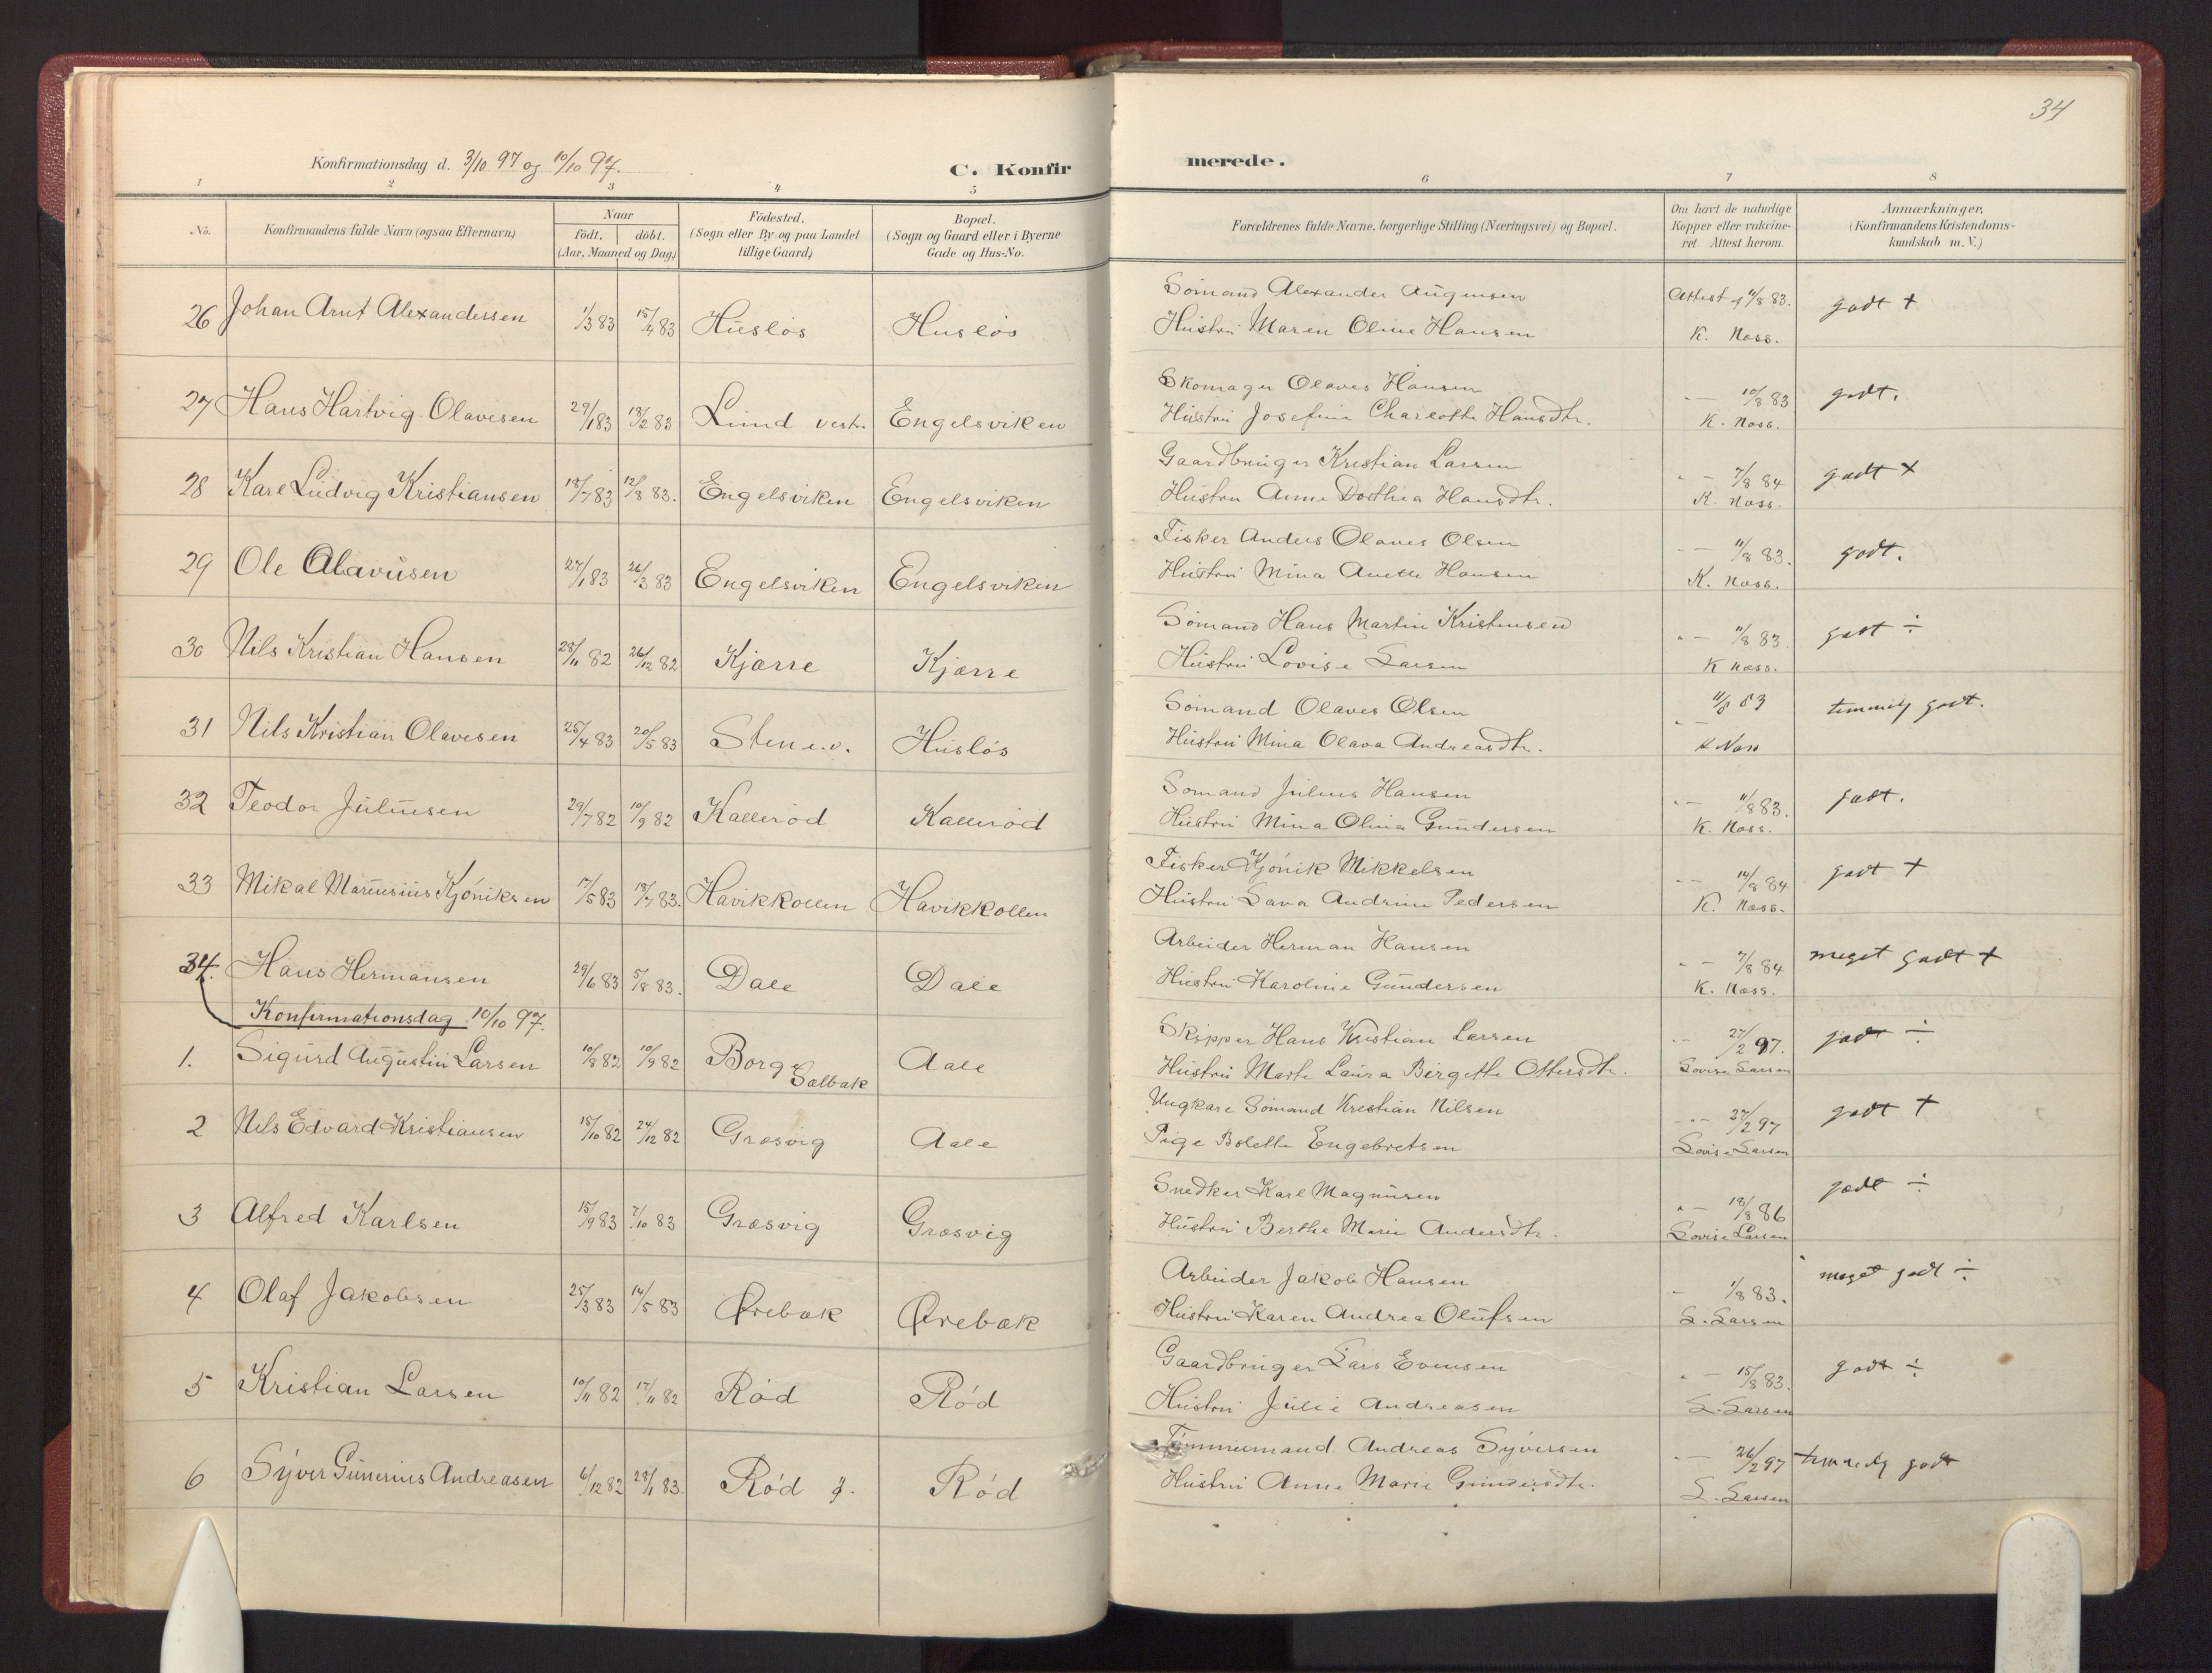 34
Konfirmationsdag d. 3/10 97 og 10/10 97.
C. Konfir
merede.
1 2 3 4 5 6 7 8
No.
Konfirmandens fulde Navn (ogsaa Efternavn)
Naar
födt. döbt.
(Aar, Maaned og Dag.)
Födested.
(Sogn eller By og paa Landet
tillige Gaard)
Bopæl.
(Sogn og Gaard eller i Byerne
Gade og Hus-No.
Forældrenes fulde Navne, borgerlige Stilling (Næringsvei) og Bopæl.
Om havt de naturlige
Kopper eller vakcine-
ret Attest herom.
Anmærkninger,
(Konfirmandens Kristendoms-
kundskab m. V.)
26 Johan Arnt Alexandersen 1/3 83 15/4 83 Husløs Husløs
Sömand Alexander Augensen
Hustru Maren Oline Hansen
Attest 11/8 83.
K. Næss.
godt +
27 Hans Hartvig Olavesen 29/1 83 18/2 83 Lund vestr. Engelsviken
Skomager Olaves Hansen
Hustru Josefine Charlotte Hansdtr.
" — 10/8 83
K. Næss.
godt.
28 Karl Ludvig Kristiansen 18/7 83 12/8 83. Engelsviken Engelsviken
Gaardbruger Kristian Larsen
Hustru Anne Dorthea Hansdtr.
" — 7/8 84
K. Næss.
godt +
29 Ole Olavusen 27/1 83 26/3 83 Engelsviken Engelsviken
Fisker Anders Olaves Olsen
Hustru Mina Anette Hansen
— 11/8 83.
K. Næss.
godt.
30 Nils Kristian Hansen 28/11 82 26/12 82 Kjærre Kjærre
Sömand Hans Martin Kristensen
Hustru Lovise Larsen
" — 11/8 83
K Næss.
godt ÷
31 Nils Kristian Olavesen 25/4 83 20/5 83 Sten e.v. Husløs
Sömand Olaves Olsen
Hustru Mina Olava Andreasdtr.
" — 11/8 83
K Næss
temmelig godt.
32 Teodor Juliusen 29/7 82 10/9 82 Kalleröd Kalleröd
Sömand Julius Hansen
Hustru Mina Olina Gundersen
" — 11/8 83.
K. Næss.
godt.
33 Mikal Marensius Kjöniksen 17/5 83 18/7 83. Havikkollen Havikkollen
Fisker Kjönik Mikkelsen
Hustru Lava Andrine Pedersen
" — 14/8 84
K. Næss.
godt +
34. Hans Hermansen 29/6 83 5/8 83. Dale Dale
Arbeider Herman Hansen
Hustru Karoline Gundersen
" — 7/8 84
K. Næss.
meget godt +
Konfirmationsdag 10/10 97.
1. Sigurd Augustin Larsen 10/8 82 10/9 82 Borge Sælbak Aale
Skipper Hans Kristian Larsen
Hustru Marte Laura Birgette Ottersdtr.
" — 27/2 97.
Lovise Larsen
godt ÷
2 Nils Edvard Kristiansen 15/10 82 24/12 82 Græsvig Aale
Ungkarl Sömand Kristian Nilsen
Pige Bolette Engebretsen
" — 27/2 97
Lovise Larsen
godt +
3 Alfred Karlsen 15/9 83 7/10 83 Græsvig Græsvig
Snedker Karl Magnusen
Hustru Berthe Marie Andersdtr.
" — 18/8 86
Lovise Larsen
godt ÷
4 Olaf Jakobsen 25/3 83 14/5 83 Ørebæk Ørebæk
Arbeider Jakob Hansen
Hustru Karen Andrea Olufsen
— 1/8 83.
L. Larsen
meget godt ÷
5 Kristian Larsen 10/11 82 17/11 82 Röd Röd
Gaardbruger Lars Evensen
Hustru Julie Andreasen
" — 15/8 83.
L. Larsen
godt ÷
6 Syver Gunerius Andreasen 6/12 82 28/1 83. Röd y. Röd
Tömmermand Andreas Syversen
Hustru Anne Marie Gundersdtr.
" — 26/2 97
L. Larsen
temmelig godt